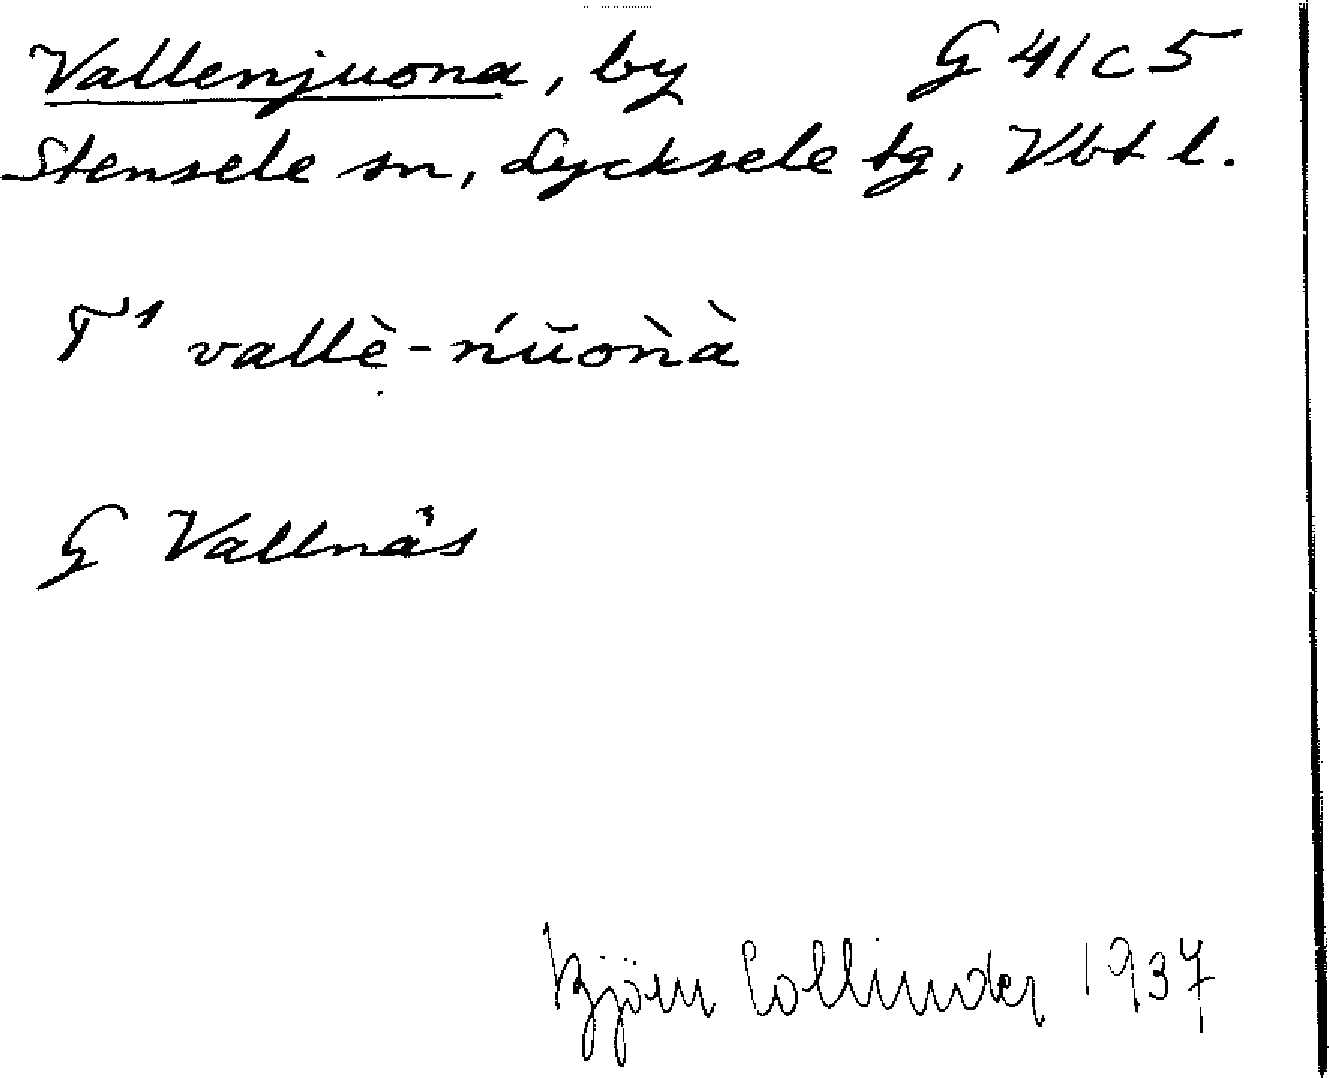 Vallenjuona, by G 41 c 5
Stensele sn, Lycksele tg, Vbt l.
T¹ vallẹ̀-ńŭoǹà
G Vallnäs
Björn Collinder 1937